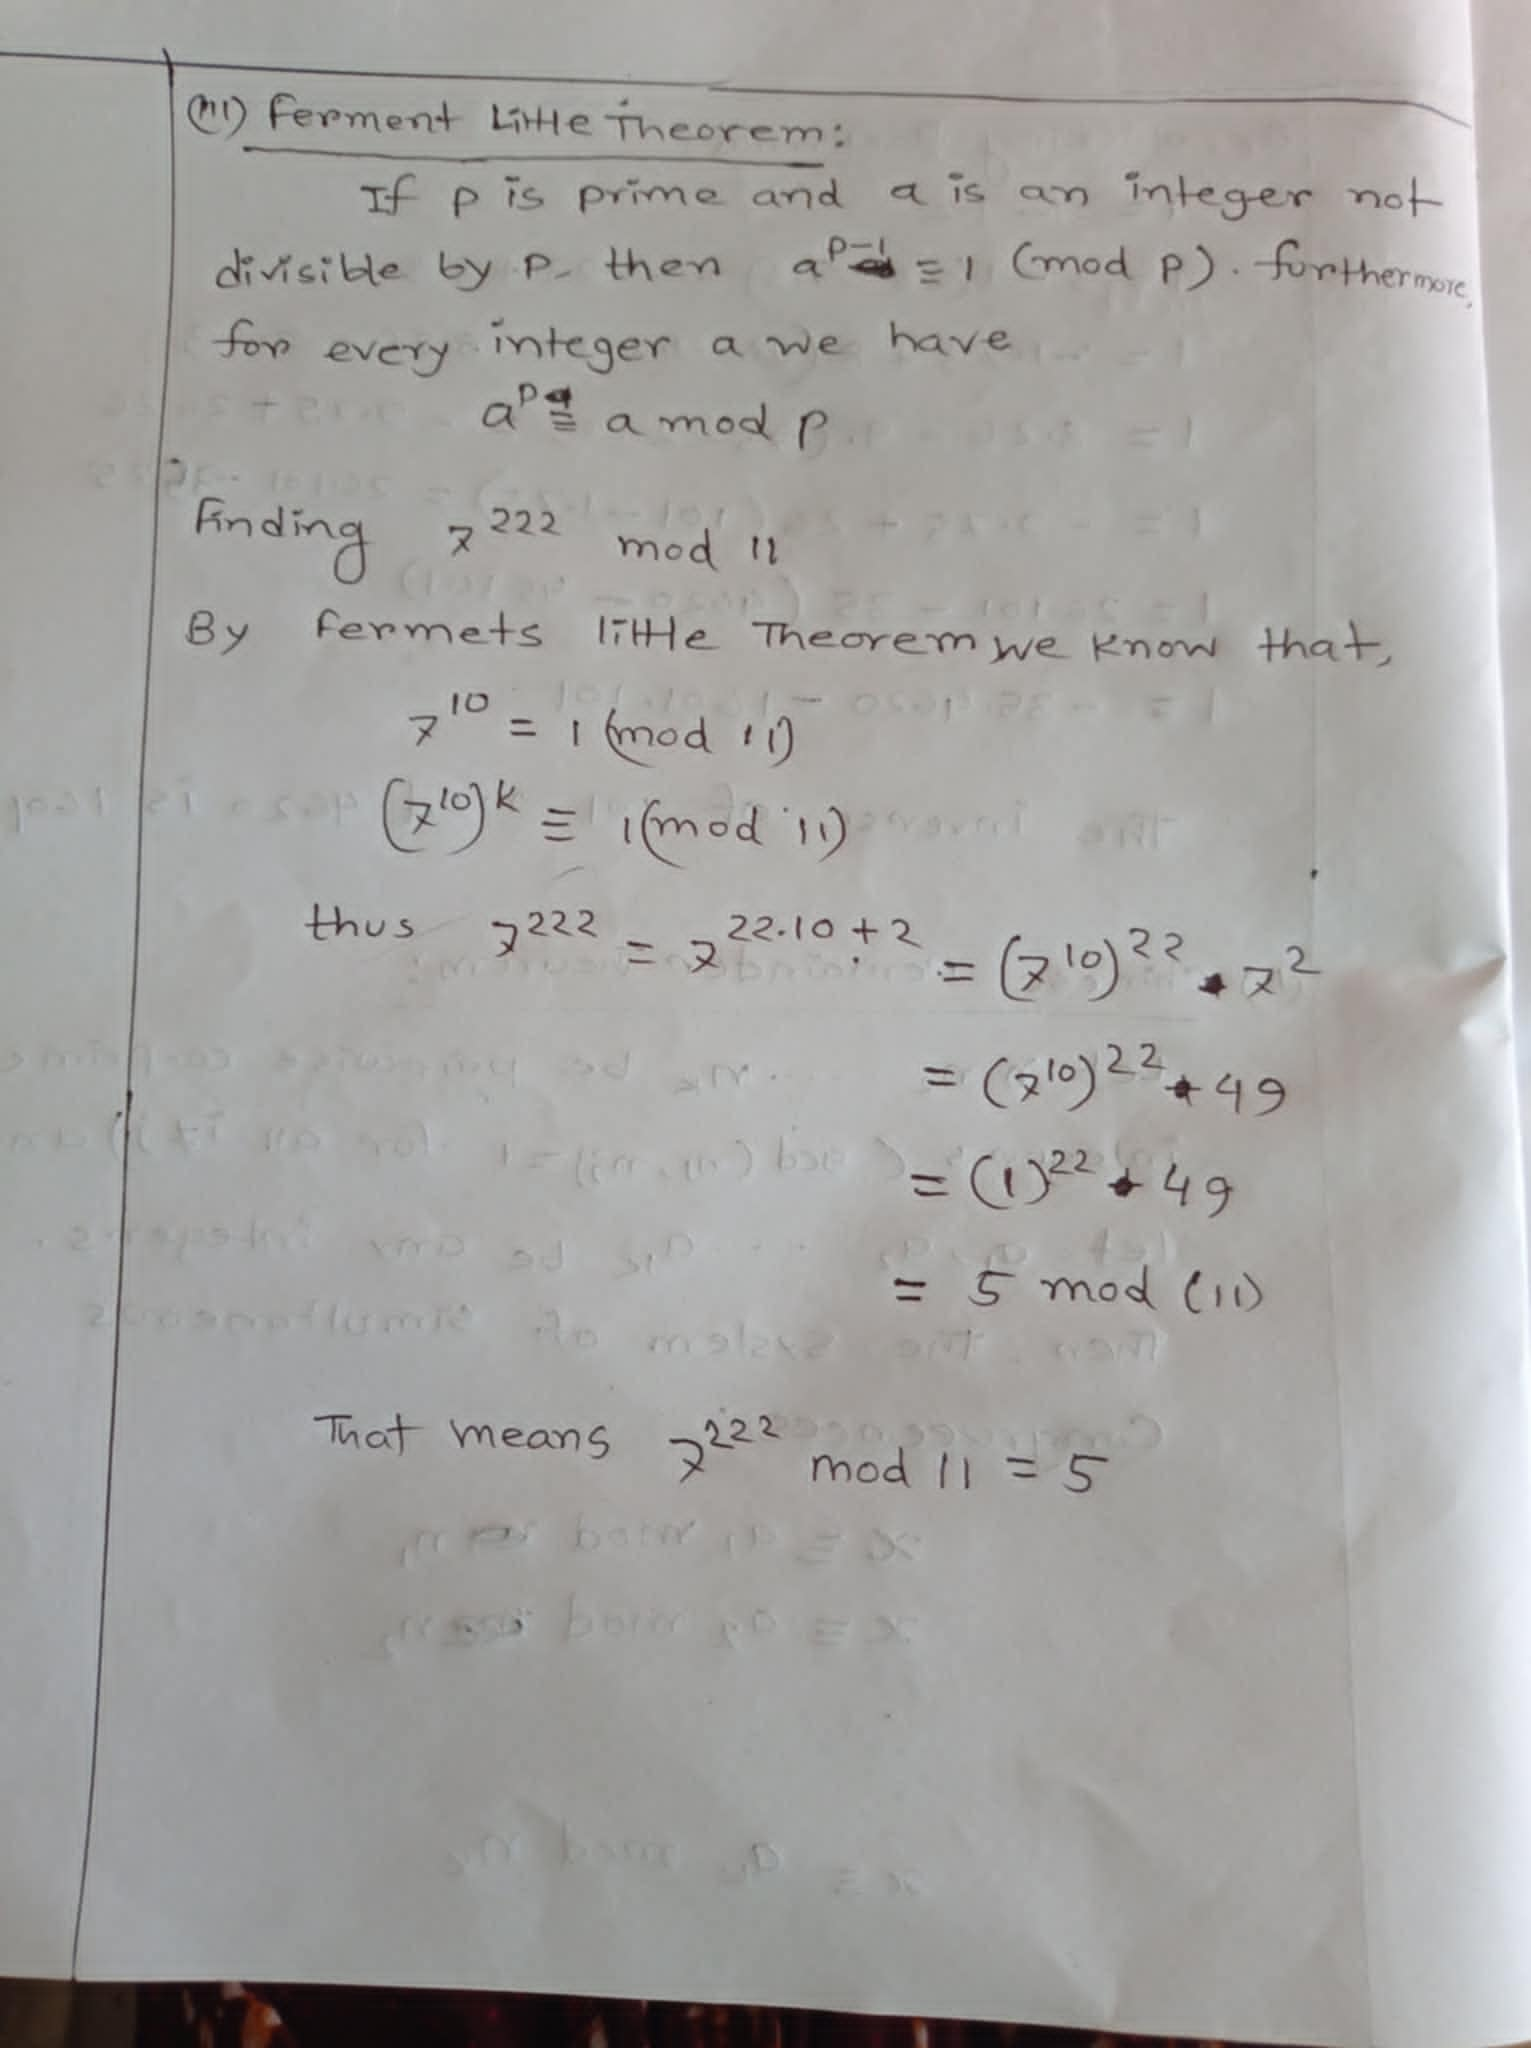 (iii) Ferment Little Theorem:
If p is prime and a is an integer not
divisible by P. then a^(P-1) ≡ 1 (mod P). furthermore,
for every integer a we have
a^p ≡ a mod p
Finding 7^222 mod 11
By fermets little Theorem we know that,
7^10 = 1 (mod 11)
(7^10)^k ≡ 1(mod 11)
thus 7^222 = 7^(22.10+2) = (7^10)^22 . 7^2
= (7^10)^22 * 49
= (1)^22 * 49
= 5 mod (11)
That means 7^222 mod 11 = 5